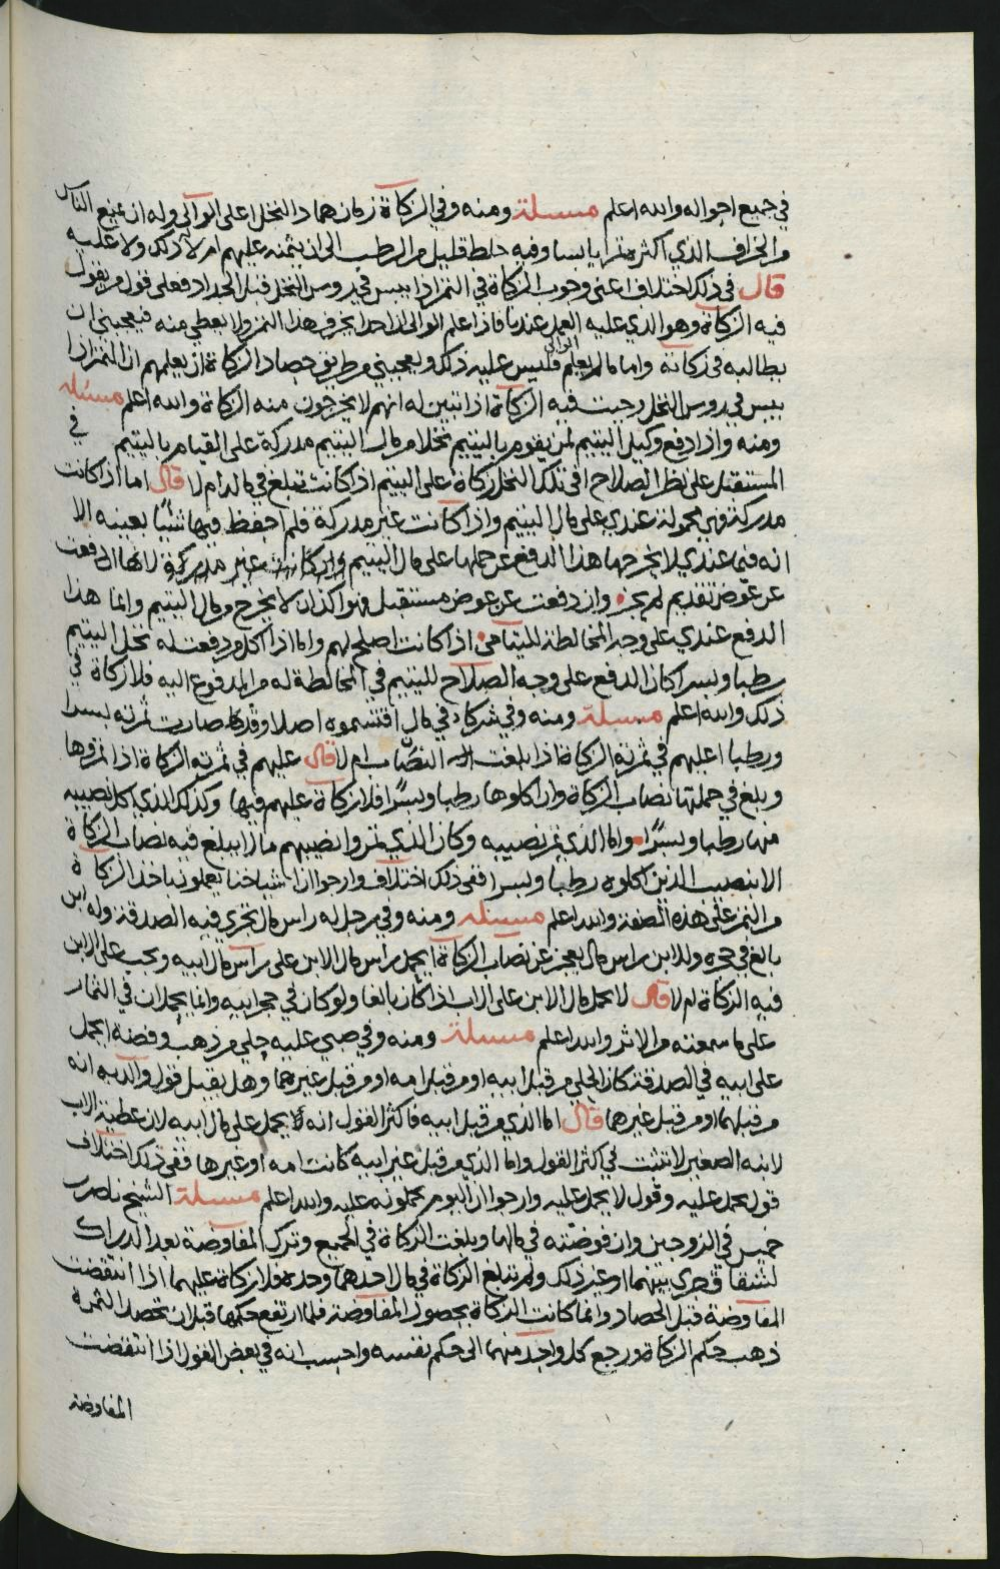 في جميع احواله والله اعلم مسئلة ومنه وفي الزكاة زمان هماد النخل اعلى الوالي وله ان يمنع الناس
من الخراف الذي اكثره تمرا يابسا وفيه خلط قليل من الرطب الى ان يثمنه عليهم ام لا له ذلك ولا عليه
قال في ذلك اختلاف اعني وجوب الزكاة في التمر اذا يبس في روس النخل قبل الجداد فعلى قول من يقول
فيه الزكاة وهو الذي عليه العمل عندنا فاذا علم الوالي ان احدا يخرف هذا التمر ولا يعطي منه فيعجبني ان
يطالبه في زكاته واما ما لم يعلم الوالي فليس عليه ذلك ويعجبني من طريق حصاد الزكاة ان يعلمهم ان التمر اذا
يبس في روس النخل وجبت فيه الزكاة اذا تبين له انهم لا يخرجون منه الزكاة والله اعلم مسئلة
ومنه واذا دفع وكيل اليتيم لمن يقوم باليتيم نخلا من مال اليتيم مدركة على القيام باليتيم في
المستقبل على نظر الصلاح افي تلك النخل زكاة على اليتيم اذا كانت تبلغ في ماله ام لا قال اما اذا كانت
مدركة فهي محمولة عندي على مال اليتيم واذا كانت غير مدركة فلم احفظ فيها شيئا بعينه الا
انه فيما عندي لا يخرجها هذا الدفع عن حملها على مال اليتيم وان كانت غير مدركة لانها ان دفعت
عن عوض تقديم لم يجز وان دفعت عن عوض مستقبل فهو كذلك لا يخرج من مال اليتيم وانما هذا
الدفع عندي على وجه المخالطة لليتامى اذا كانت اصلح لهم واما اذا اكل من دفعت له نخل اليتيم
رطبا وبسرا كان الدفع على وجه الصلاح لليتيم في المخالطة له من المدفوع اليه فلا زكاة في
ذلك والله اعلم مسئلة ومنه وفي شركاء في مال اقتسموه اصلا وقد صارت ثمرته بسرا
ورطبا اعليهم في ثمرته الزكاة اذا بلغت النصاب ام لا قال عليهم في ثمرته الزكاة اذا تمروها
وبلغ في جملتها نصاب الزكاة وان اكلوها رطبا وبسرا فلا زكاة عليهم فيها وكذلك الذي اكل نصيبه
منها رطبا وبسرا واما الذي تمر نصيبه وكان الذي تمروا نصيبهم مالا يبلغ فيه نصاب الزكاة
الا بنصيب الذين اكلوه رطبا وبسرا ففي ذلك اختلاف وارجوا ان اشياخنا يعملون باخذ الزكاة
من التمر على هذه الصفة والله اعلم مسئلة ومنه وفي رجل له راس مال تجري فيه الصدقة وله ابن
بالغ في حجره وللابن راس مال يعجز عن نصاب الزكاة ايحمل راس مال الابن على راس مال ابيه ويجب على الابن
فيه الزكاة ام لا قال لا يحمل مال الابن على الاب اذا كان بالغا ولو كان في حجر ابيه وانما يحملان في الثمار
على ما سمعته من الاثر والله اعلم مسئلة ومنه وفي صبي عليه حلي من ذهب وفضة ايحمل
على ابيه في الصدقة كان الحلي من قبل ابيه او من قبل امه او من قبل غيرهما وهل يقبل قول والديه انه
من قبلهما او من قبل غيرهما قال اما الذي من قبل ابيه فاكثر القول انه يحمل على مال ابيه لان عطية الاب
لابنه الصغير لا تثبت في اكثر القول واما الذي من قبل غير ابيه كانت امه او غيرها ففي ذلك اختلاف
قول يحمل عليه وقول لا يحمل عليه وارجوا ان اليوم يحملونه عليه والله اعلم مسئلة الشيخ ناصر بن
خميس في الزوجين وان فوضته في مالها وبلغت الزكاة في الجميع وترك المفاوضة بعد الدراك
لشقاق جرى بينهما او غير ذلك ولم تبلغ الزكاة في مال احدهما وحده فلا زكاة عليهما اذا انتقضت
المفاوضة قبل الحصاد وانما كانت الزكاة بحصول المفاوضة فلما ارتفع حكمها قبل ان تحصد الثمرة
ذهب حكم الزكاة ورجع كل واحد منهما الى حكم نفسه واحسب انه في بعض القول اذا انتقضت
المفاوضة